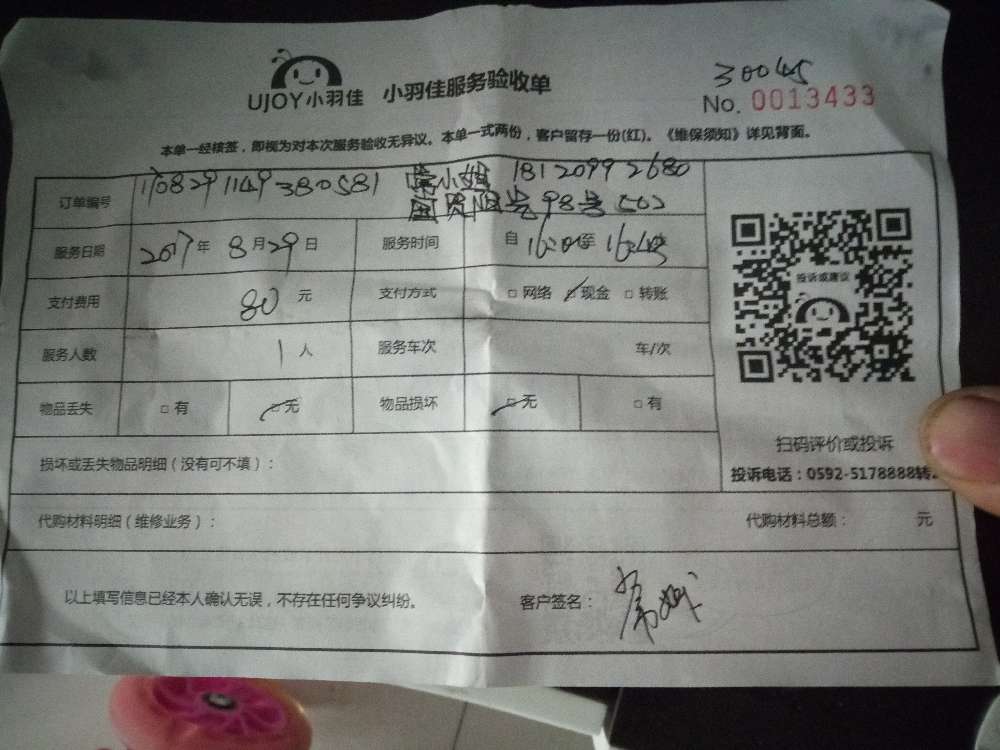 UJOY小羽佳 小羽佳服务验收单
30045
No. 0013433
本单一经核签，即视为对本次服务验收无异议。本单一式两份，客户留存一份(红)。《维保须知》详见背面。
订单编号 1708291149380581 常小姐 18120992680
国贸阳光98号502
服务日期 2017年8月29日 服务时间 自 至 16:45
支付费用 80元 支付方式 □网络 ☑现金 □转账
投诉或建议
服务人数 1人 服务车次 车/次
物品丢失 □有 ☑无 物品损坏 ☑无 □有
扫码评价或投诉
投诉电话：0592-5178888转
损坏或丢失物品明细（没有可不填）：
代购材料明细（维修业务）： 代购材料总额： 元
以上填写信息已经本人确认无误，不存在任何争议纠纷。 客户签名：